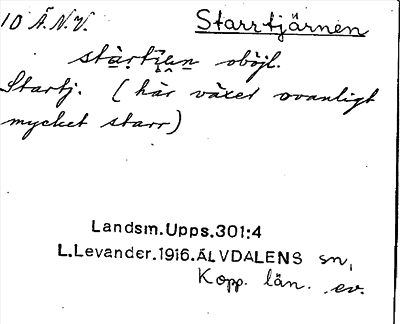 10 Ä.N.V. Starrtjärnen
oböjl.
Startj. (här växer ovanligt
mycket starr)
Landsm.Upps.301:4
L.Levander.1916.ÄLVDALENS sn,
Kopp. län. ev.